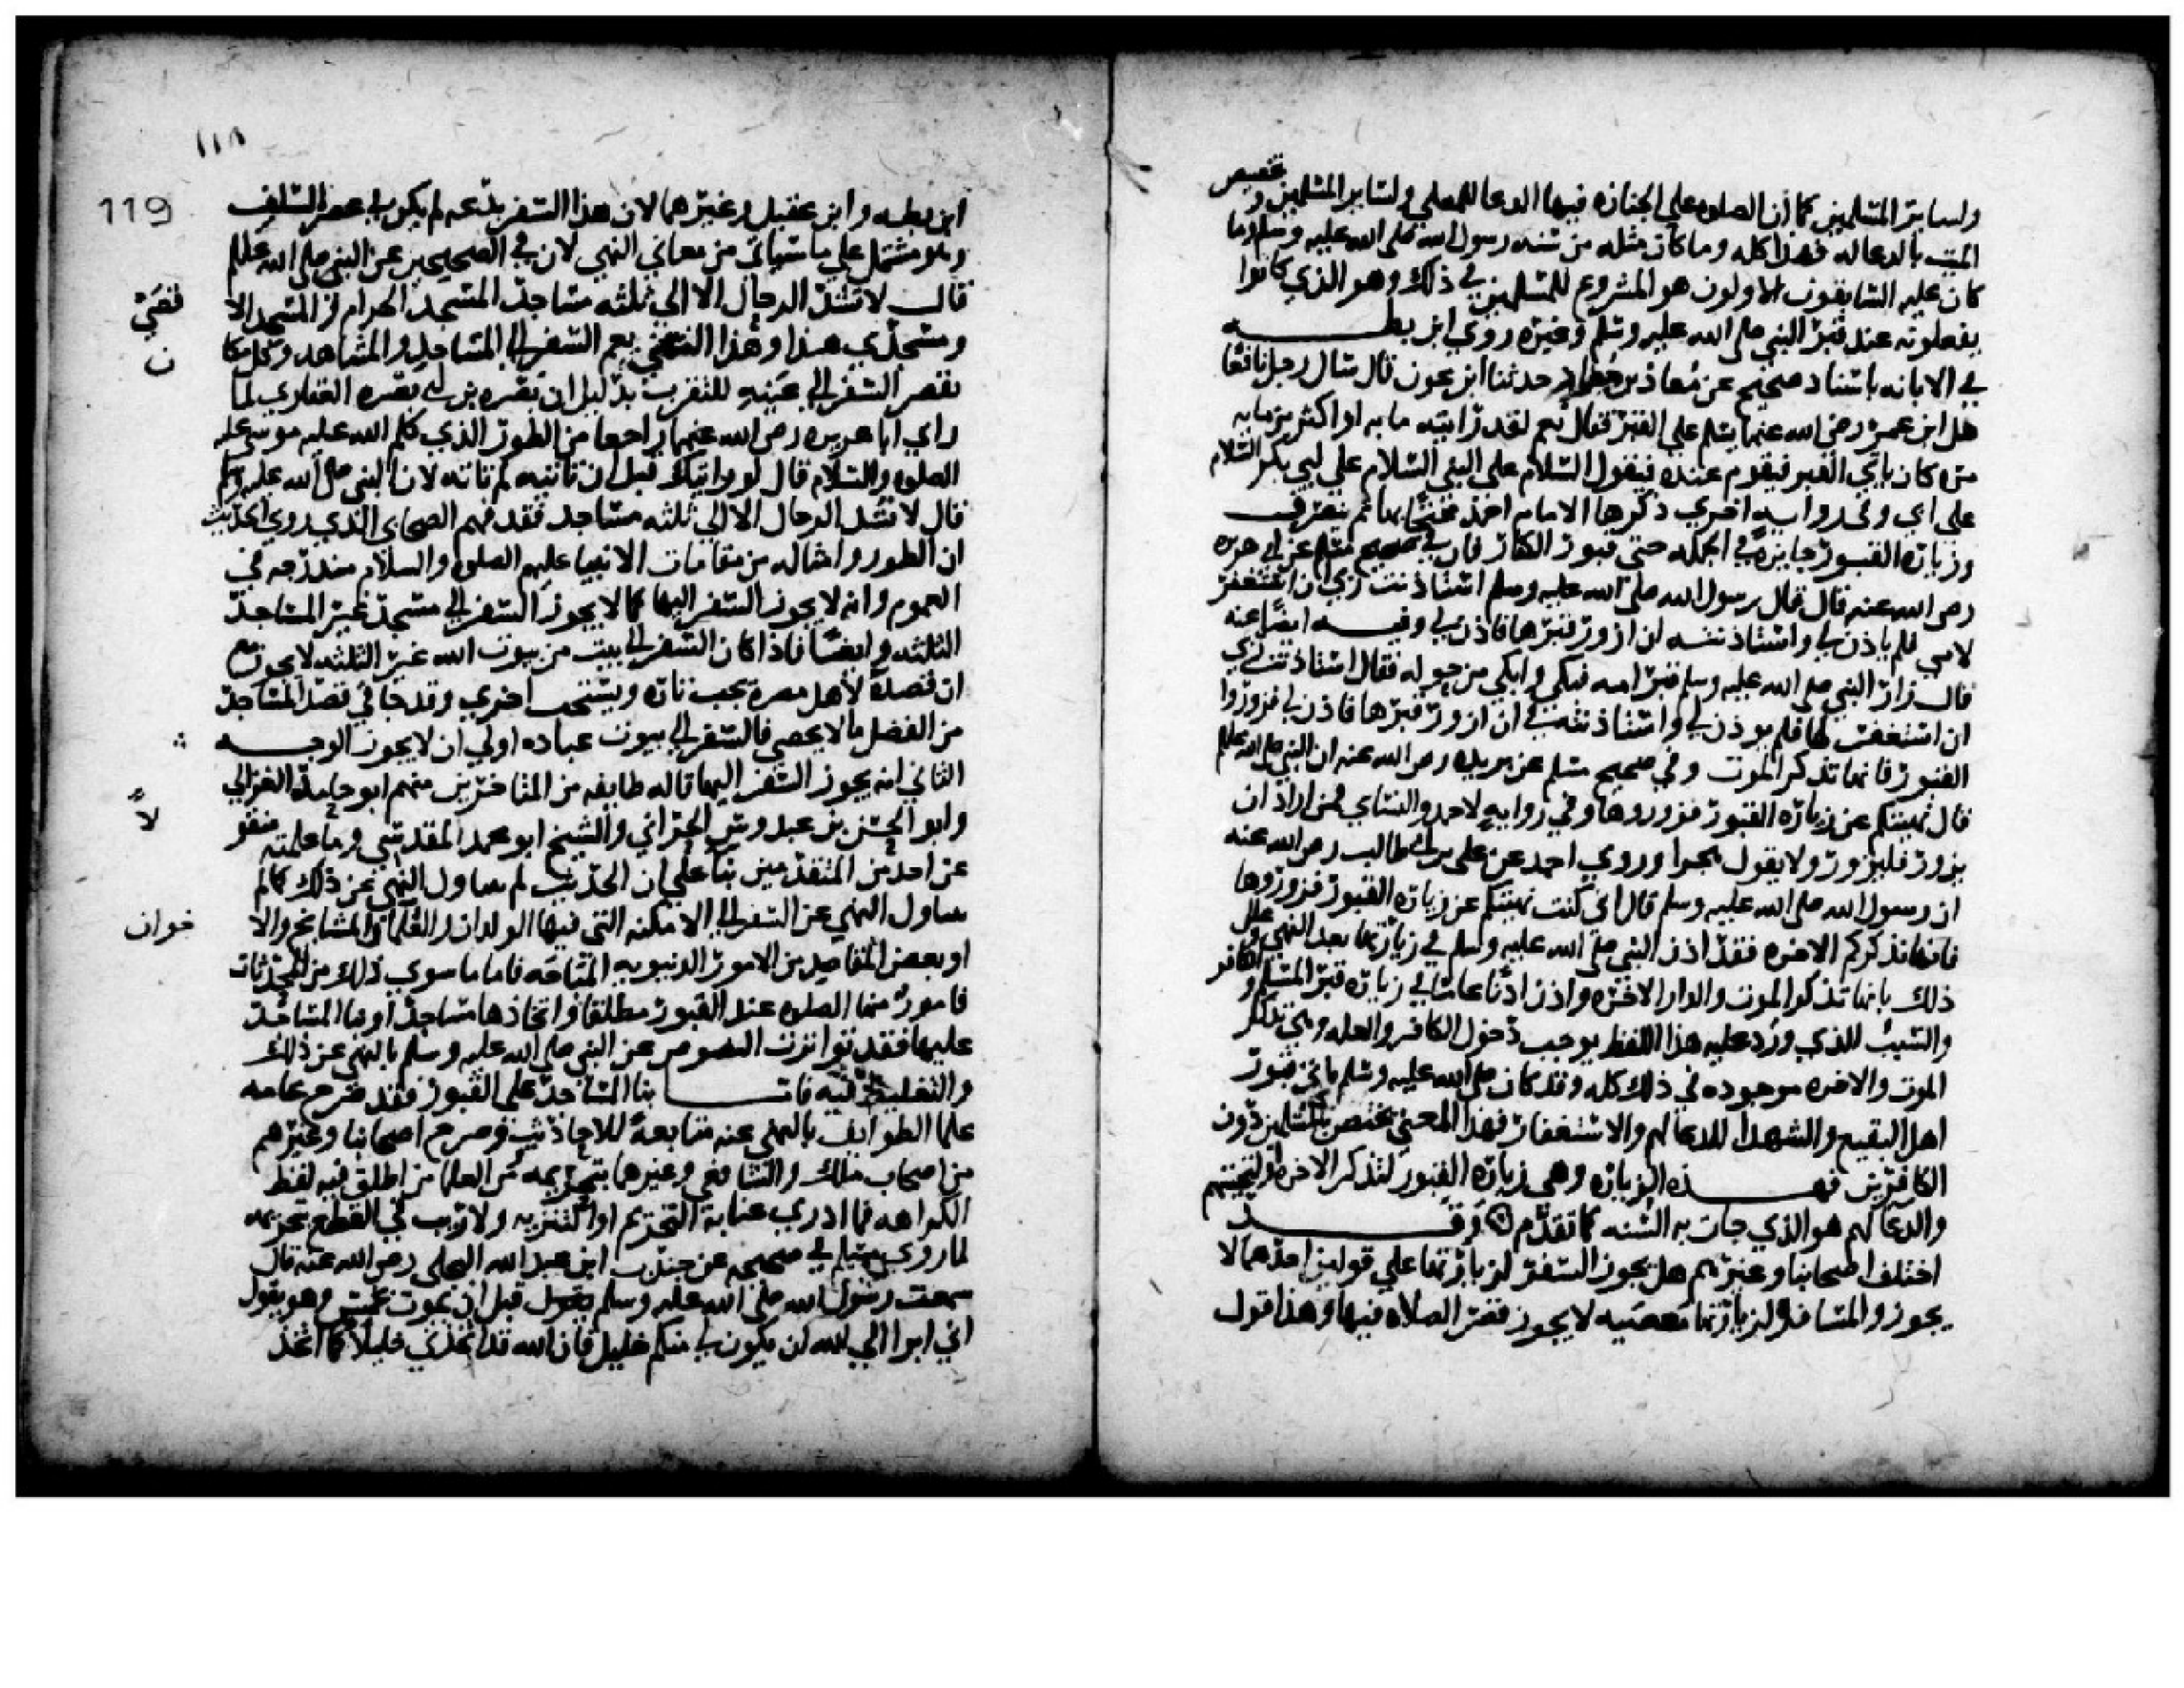 ولساير المسلمين كما أن الصلوه علي الجنازه فيها الدعا للمصلي ولساير المسلمين وتخصيص
الميت بالدعا له فهذا كله وما كان مثله من سنه رسول الله صلى الله عليه وسلم وما
كان عليه السابقون الاولون هو المشروع للمسلمين في ذلك وهو الذي كانوا
يفعلونه عند قبر النبي صلى الله عليه وسلم وغيره روي ابن بطه
في الابانه باسناد صحيح عن معاذ بن حدثنا ابن عون قال سال رجل نافعا
هل ابن عمر رضي الله عنهما يسلم علي القبر فقال نعم لقد رايته مايه او اكثر من مايه
مره كان ياتي القبر فيقوم عنده فيقول السلام على النبي السلام علي ابي بكر السلام
علي ابي وفي روايه اخري ذكرها الامام احمد محتجا بها ثم ينصرف
وزياره القبور جايزه في الجمله حتي قبور الكفار فان في صحيح مسلم عن ابي هريره
رضي الله عنه قال قال رسول الله صلى الله عليه وسلم استاذنت ربي ان استغفر
لامي فلم ياذن لي واستاذنته ان ازور قبرها فاذن لي وفيه ايضا عنه
قال زار النبي صلى الله عليه وسلم قبر امه فبكي وابكي من حوله فقال استاذنت ربي
ان استغفر لها فلم يوذن لي واستاذنته في ان ازور قبرها فاذن لي فزوروا
القبور فانها تذكر الموت وفي صحيح مسلم عن بريده رضي الله عنه ان النبي صلى الله عليه وسلم
قال نهيتكم عن زياره القبور فزوروها وفي روايه لاحمد والنساي فمن اراد ان
يزور فليزور ولا يقول هجرا وروي احمد عن علي بن ابي طالب رضي الله عنه
ان رسول الله صلى الله عليه وسلم قال اني كنت نهيتكم عن زياره القبور فزوروها
فانها تذكركم الاخره فقد اذن النبي صلى الله عليه وسلم في زيارتها بعد النهي وعلل
ذلك بانها تذكر الموت والدار الاخره واذن اذنا عاما في زياره قبر المسلم والكافر
والسبب الذي ورد عليه هذا اللفظ يوجب دخول الكافر والعله وهي تذكر
الموت والاخره موجوده في ذلك كله وقد كان صلى الله عليه وسلم ياتي قبور
اهل البقيع والشهدا للدعا لهم والاستغفار فهذا المعني يختص بالمسلمين دون
الكافرين فهذه الزياره وهي زياره القبور لتذكر الاخره او لتحيتهم
والدعا لهم هو الذي جات به السنه كما تقدم وقد
اختلف اصحابنا وغيرهم هل يجوز السفر لزيارتها علي قولين احدهما لا
يجوز والمسافر لزيارتها معصيه لا يجوز قصر الصلاه فيها وهذا قول
١١٨
119
ابن بطه وابن عقيل وغيرهما لان هذا السفر بدعه لم يكن في عصر السلف
وهو مشتمل علي ما سياتي من معاني النهي لان في الصحيحين عن النبي صلى الله عليه وسلم
قال لا تشد الرحال الا الي ثلثه مساجد المسجد الحرام والمسجد الاقصي
ومسجدي هذا وهذا النهي يعم السفر الي المساجد والمشاهد وكل مكان
يقصر السفر الي عينه للتقرب بدليل ان بصره بن ابي بصره الغفاري لما
راي ابا هريره رضي الله عنهما راجعا من الطور الذي كلم الله عليه موسي عليه
الصلوه والسلام قال لو رايتك قبل ان تاتيه لم تاته لان النبي صلى الله عليه وسلم
قال لا تشد الرحال الا الي ثلثه مساجد فقد فهم الصحابي الذي روي الحديث
ان الطور وامثاله من مقامات الانبيا عليهم الصلوه والسلام مندرجه في
العموم وانه لا يجوز السفر اليها كما لا يجوز السفر الي مسجد غير المساجد
الثلثه وايضا فاذا كان السفر الي بيت من بيوت الله غير الثلثه لا يجوز مع
ان قصده لاهل مصره يجب تاره ويستحب اخري وقد جا في قصد المساجد
من الفضل ما لا يحصي فالسفر الي بيوت عباده اولي ان لا يجوز الوجه
الثاني انه يجوز السفر اليها قاله طايفه من المتاخرين منهم ابو حامد الغزالي
وابو الحسن بن عبدوس الحراني والشيخ ابو محمد المقدسي وما علمته منقولاً
عن احد من المتقدمين بنا علي ان الحديث لم يتناول النهي عن ذلك كما لم
يتناول النهي عن السفر الي الامكنه التي فيها الوالدان والعلما والمشايخ والاخوان
او بعض المقاصد من الامور الدنيويه المباحه فاما ما سوي ذلك من المحدثات
فامور منها الصلوه عند القبور مطلقا واتخاذها مساجد او بنا المساجد
عليها فقد تواترت النصوص عن النبي صلى الله عليه وسلم بالنهي عن ذلك
والتغليظ فيه فاما بنا المساجد علي القبور فقد صرح عامه
علما الطوايف بالنهي عنه متابعة للاحاديث وصرح اصحابنا وغيرهم
من اصحاب ملك والشافعي وغيرهما بتحريمه ومن العلما من اطلق فيه لفظ
الكراهه فما ادري عنا به التحريم او التنزيه ولا ريب في القطع بتحريمه
لما روي مسلم في صحيحه عن جندب ابن عبد الله البجلي رضي الله عنه قال
سمعت رسول الله صلى الله عليه وسلم يقول قبل ان يموت بخمس وهو يقول
اني ابرا الي الله ان يكون لي منكم خليل فان الله قد اتخذني خليلا كما اتخذ